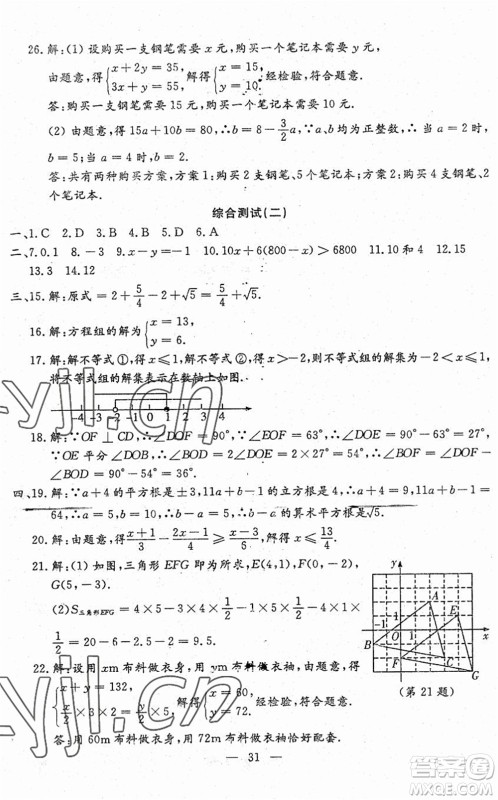 26. 解:(1) 设购买一支钢笔需要 x 元,购买一个笔记本需要 y 元,
由题意,得{x+2y=35, 3x+3y=75, 解得{x=15, y=10. 经检验,符合题意.
答:购买一支钢笔需要 15 元,购买一个笔记本需要 10 元.
(2) 由题意,得 15a+10b=80,∴b=8-3/2 a.∵a、b 均为正整数,∴当 a=2 时,
b=5;当 a=4 时,b=2.
答:共有两种购买方案,方案:购买 2 支钢笔、5 个笔记本;购买 4 支钢笔、2
个笔记本.
综合测试(二)
一、1.C 2.D 3.B 4.D 5.D 6.A
二、7.0,1 8.-3 9.x=y=-1 10.10x+6(800-x)>6800 11.10 和 4 12.15
13.3 14.12
三、15. 解:原式=2+5/4-2+√5=5/4+√5.
16. 解:方程组的解为{x=13, y=6.
17. 解:解不等式①,得 x≤1,解不等式②,得 x>-2,则不等式组的解集为-2<x≤1,
将不等式组的解集表示在数轴上如图.
-4 -3 -2 -1 0 1 2 3 4
18. 解:∵OF⊥CD,∴∠DOF=90°.∵∠EOF=63°,∴∠DOE=90°-63°=27°,
∵OE 平分∠BOD,∴∠BOD=2∠DOE=54°.∵OA⊥OB,∴∠AOB=90°,
∴∠BOF=90°-54°=36°.
四、19. 解:∵a+4 的平方根是±3,11a+b-1 的立方根是 4,∴a+4=9,11a+b-1=
64,∴a=5,b=10,∴b-a=10-5=5,∴b-a 的算术平方根是√5.
20. 解:由题意,得 x+1/3-2x-1/4≥x-3/6,解得 x≤13/4.
21. 解:(1) 如图,三角形 EFG 即为所求,E(4,1),F(0,-2),
G(5,-3).
(2)S三角形EFG=4×5-3×4×1/2-4×1×1/2-1×5×
1/2=20-6-2-2.5=9.5.
22. 解:设用 xm 布料做衣身,用 ym 布料做衣袖.由题意,得
{x+y=132, x/2×3=y/2×5, 解得{x=60, y=72. 经检验,符合题意.
答:用 60m 布料做衣身,用 72m 布料做衣袖恰好配套.
y
A
E
-1 O 1
1
x
B
F
C
G
(第 21 题)
— 31 —